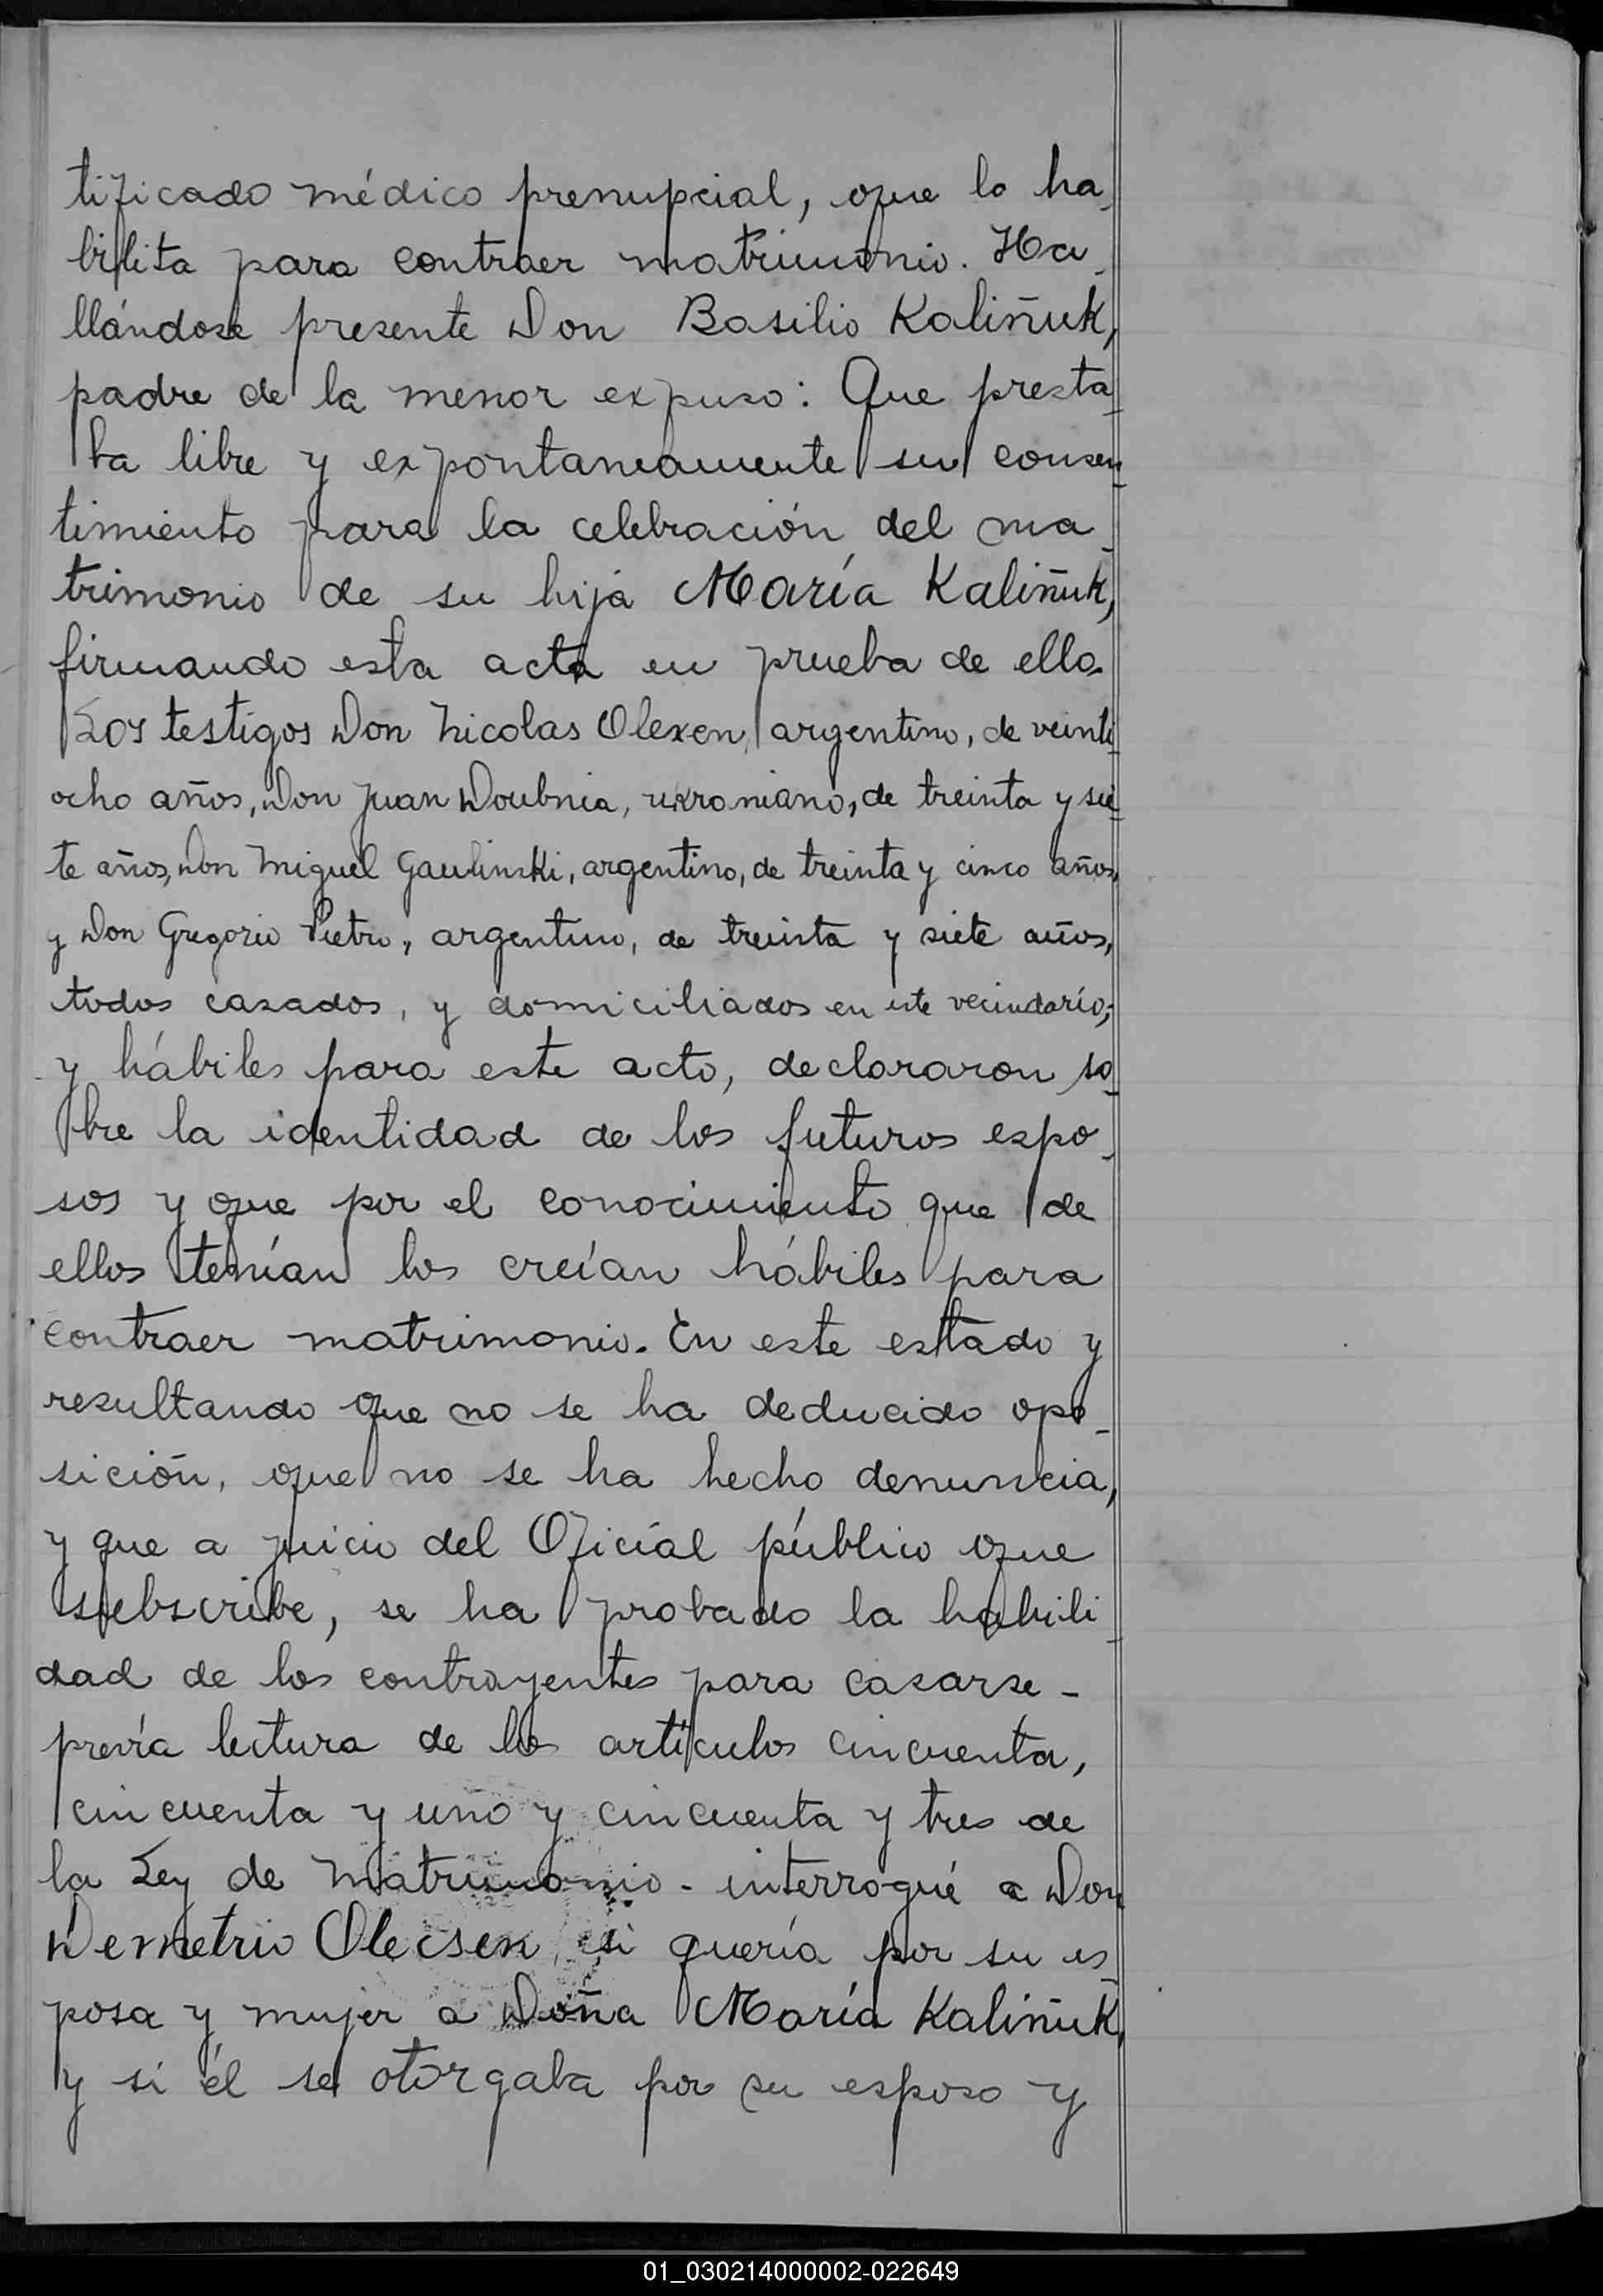 tificado médico prenupcial, que lo ha-
bilita para contraer matrimonio. Ha-
llándose presente Don Basilio Kaliñuk,
padre de la menor expuso: Que presta-
ba libre y expontaneamente su consen-
timiento para la celebración del ma-
trimonio de su hija María Kaliñuk,
firmando esta acta en prueba de ello.
Los testigos Don Nicolas Olexen, argentino, de veinti-
ocho años, Don Juan Doubnia, ukraniano, de treinta y sie-
te años, Don Miguel Gaulinski, argentino, de treinta y cinco años,
y Don Gregorio Pietro, argentino, de treinta y siete años,
todos casados, y domiciliados en este vecindario;
y hábiles para este acto, declararon so-
bre la identidad de los futuros espo-
sos y que por el conocimiento que de
ellos tenían los creían hábiles para
contraer matrimonio. En este estado y
resultando que no se ha deducido opo-
sición, que no se ha hecho denuncia,
y que a juicio del Oficial público que
subscribe, se ha probado la habili-
dad de los contrayentes para casarse -
previa lectura de los artículos cincuenta,
cincuenta y uno y cincuenta y tres de
la Ley de Matrimonio - interrogué a Don
Demetrio Olecsen si quería por su es-
posa y mujer a Doña María Kaliñuk,
y si él se otorgaba por su esposo y
01_030214000002-022649